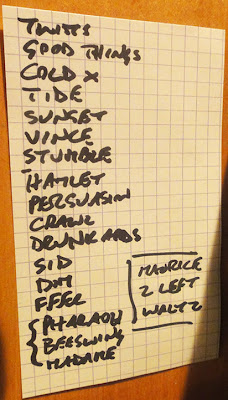 GOOD THINGS
COLD X
TIDE
SUNSET
VINCE
STUMBLE
HAMLET
PERSUASION
CRAWL
DRUNKARDS
SID
PHARAOH
BEESWING
MADAME
MAURICE
2 LEFT
WALTZ